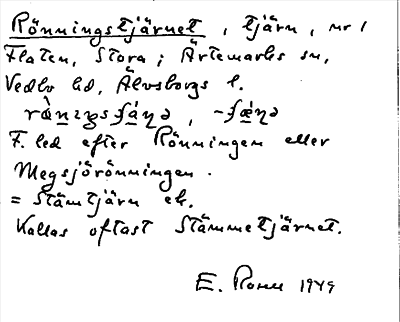 Rönningstjärnet, tjärn, nr 1
Flaten, Stora; Ärtemarks sn,
Vedbo hd, Älvsborgs l.
F. led efter Rönningen eller
Megsjörönningen.
= Stämtjärn ek.
Kallas oftast Stämmetjärnet.
E. Rohm 1949